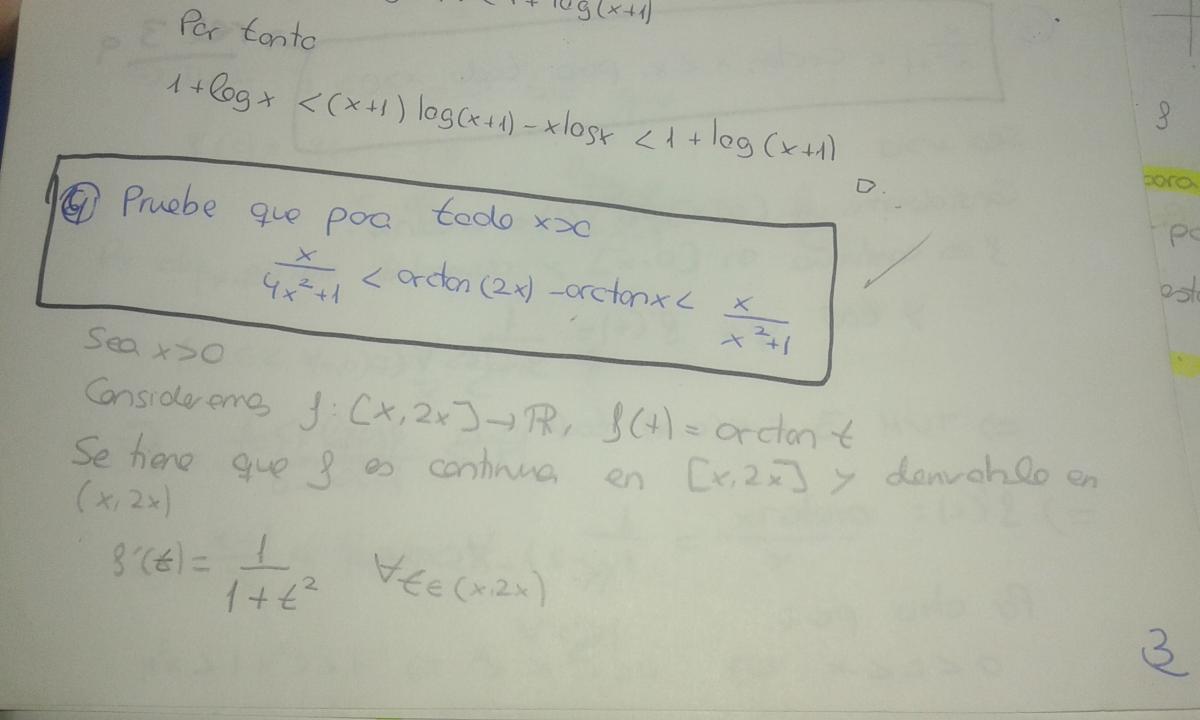 log(x+1)
Por tanto
1+log x < (x+1) log(x+1) - x log x < 1 + log (x+1)
□.
Pruebe que para todo x>0
x/(4x²+1) < arctan(2x) - arctan x < x/(x²+1)
Sea x>0
Consideremos f: [x, 2x] → ℝ, f(t) = arctan t
Se tiene que f es continua en [x, 2x] y derivable en
(x, 2x)
f'(t) = 1/(1+t²) ∀t∈(x, 2x)
3